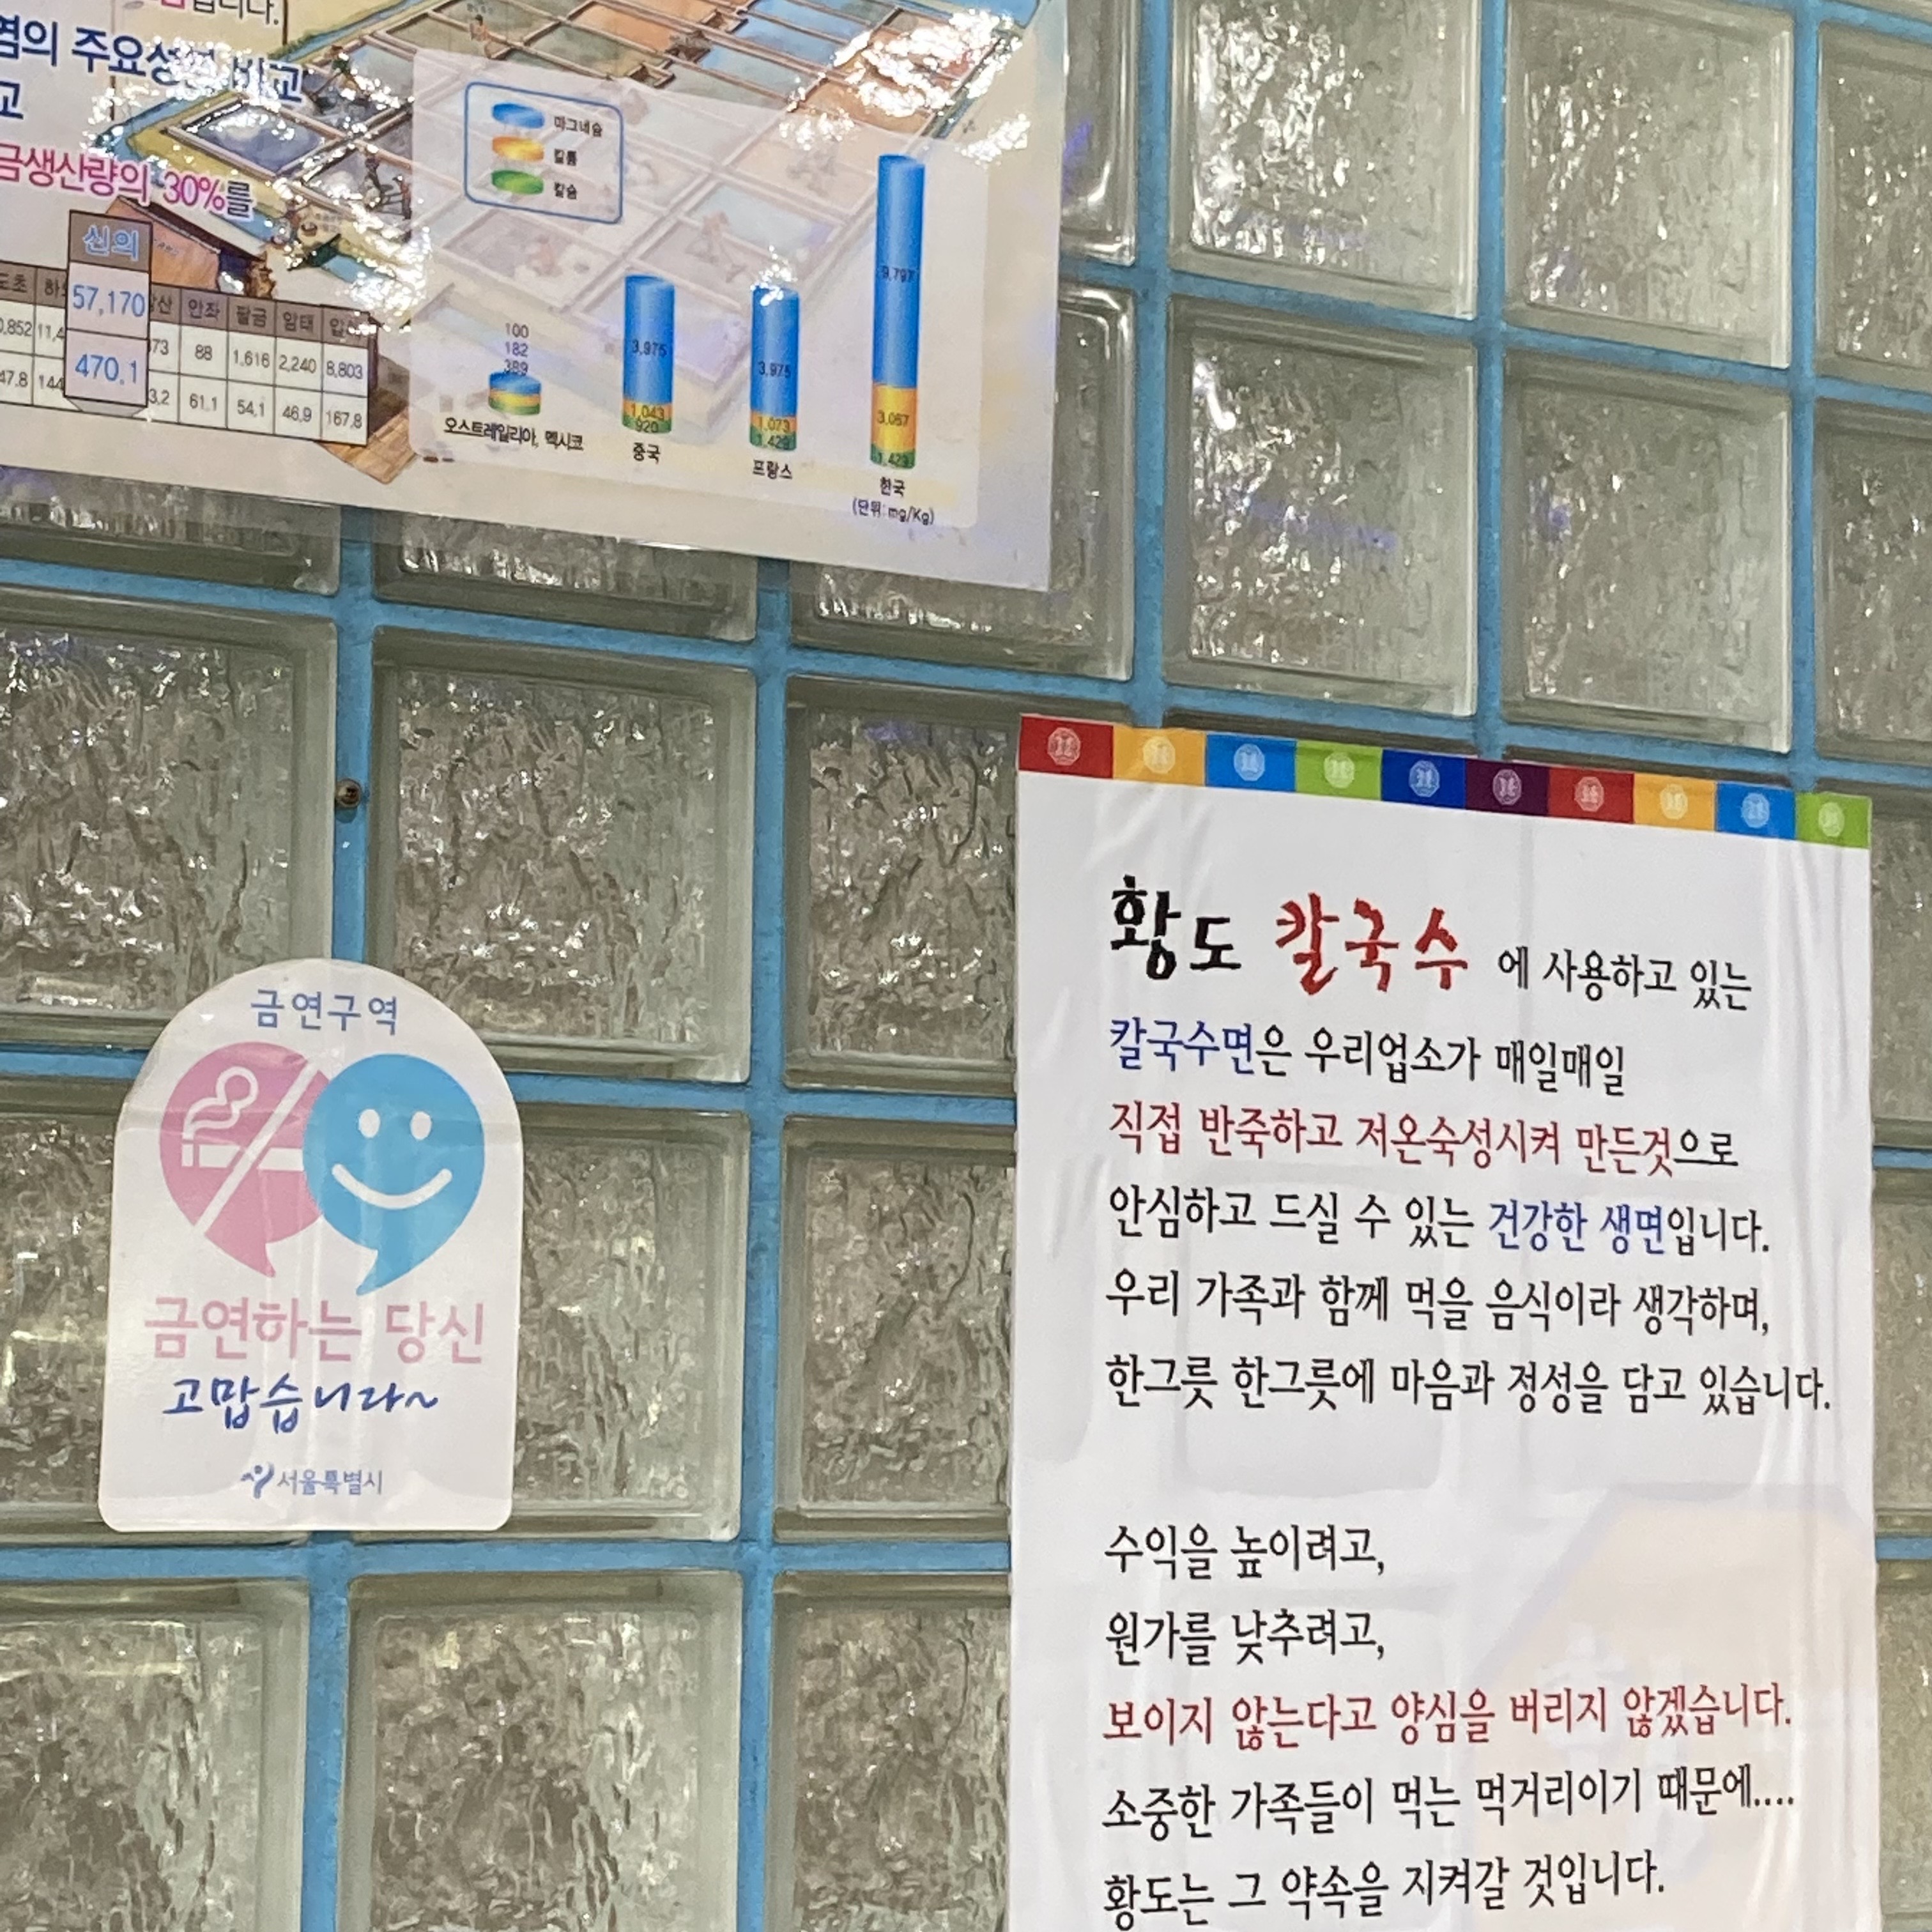 입니다.
염의 주요성분 비고
고
금생산량의 30%를
신의
57,170
470.1
도초
안좌 팔금 암태
88 1,616 2,240 8,803
61.1 54.1 46.9 167.8
마그네슘
칼륨
칼슘
100
182
389
오스트레일리아, 멕시코
3,975
1,043
920
중국
3,975
1,073
1,429
프랑스
9,797
3,067
1,429
한국
(단위: mg/Kg)
금연구역
금연하는 당신
고맙습니다~
서울특별시
황도 칼국수 에 사용하고 있는
칼국수면은 우리업소가 매일매일
직접 반죽하고 저온숙성시켜 만든것으로
안심하고 드실 수 있는 건강한 생면입니다.
우리 가족과 함께 먹을 음식이라 생각하며,
한그릇 한그릇에 마음과 정성을 담고 있습니다.
수익을 높이려고,
원가를 낮추려고,
보이지 않는다고 양심을 버리지 않겠습니다.
소중한 가족들이 먹는 먹거리이기 때문에....
황도는 그 약속을 지켜갈 것입니다.